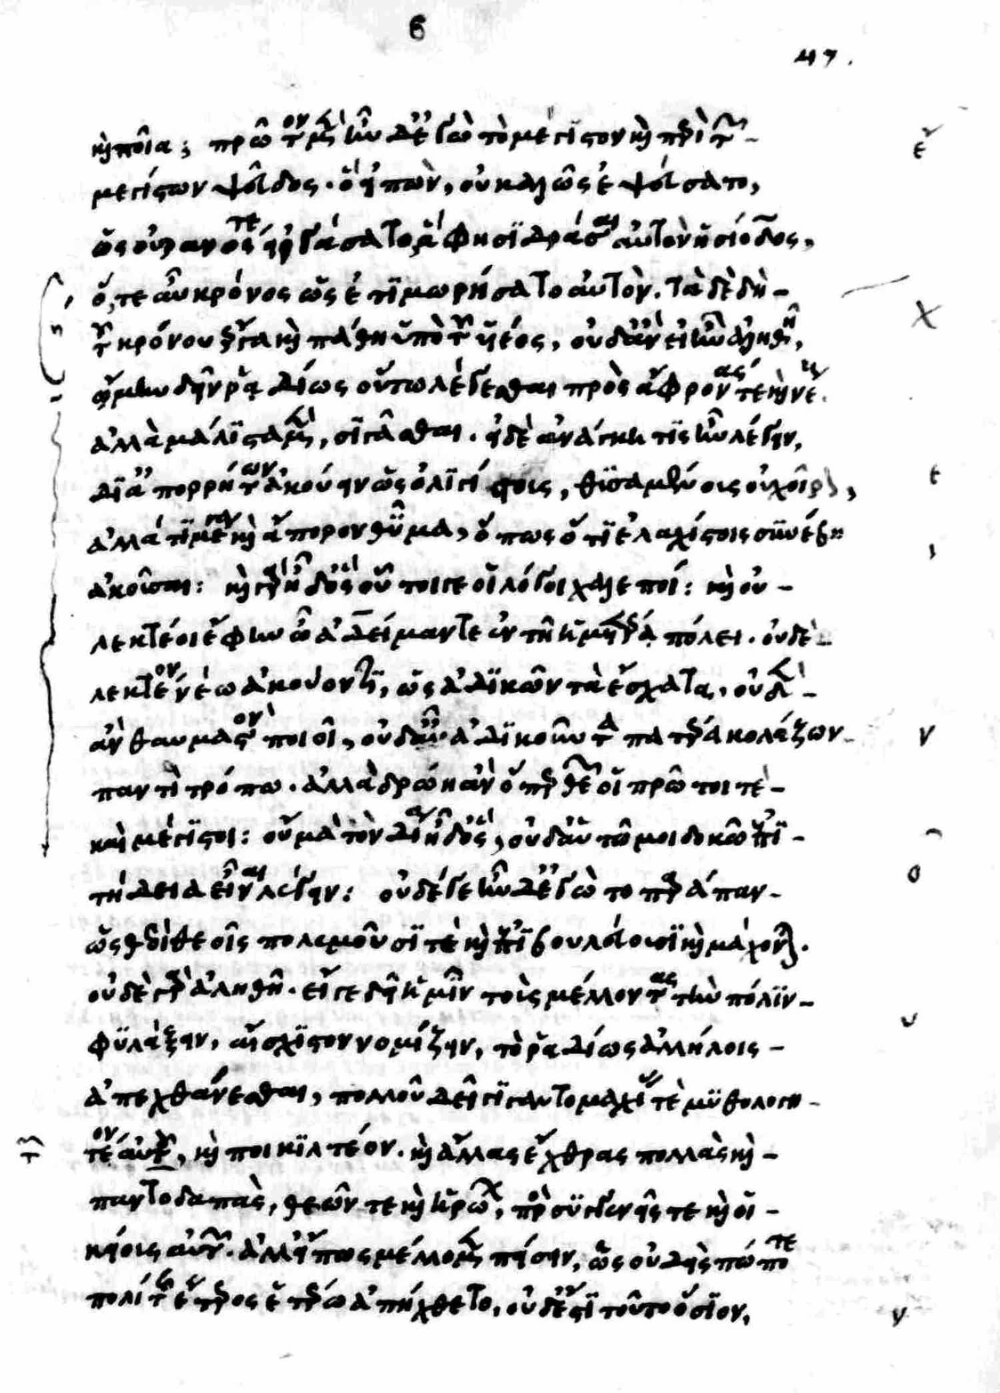 β
47.
καὶ ποῖα; πρῶτον μὲν ἦν δ' ἐγὼ τὸ μέγιστον καὶ περὶ τῶν
μεγίστων ψεῦδος. ὁ εἰπὼν, οὐ καλῶς ἐψεύσατο,
ὡς οὐρανός τε εἰργάσατο, ἅ φησι δρᾶσαι αὐτὸν ἡσίοδος,
ὅ, τε αὖ κρόνος ὡς ἐτιμωρήσατο αὐτόν. τὰ δὲ δὴ
τοῦ κρόνου ἔργα καὶ πάθη ὑπὸ τοῦ υἱέος, οὐδ' ἂν εἰ ἦν ἀληθῆ,
ᾤμην δεῖν ῥᾳδίως οὕτω λέγεσθαι πρὸς ἄφρονάς τε καὶ νέους.
ἀλλὰ μάλιστα μὲν, σιγᾶσθαι. εἰ δὲ ἀνάγκη τις ἦν λέγειν,
δι' ἀπορρήτων ἀκούειν ὡς ὀλιγίστους, θυσαμένους οὐ χοῖρον,
ἀλλά τι μέγα καὶ ἄπορον θῦμα, ὅπως ὅτι ἐλαχίστοις συνέβη
ἀκοῦσαι: καὶ γὰρ ἦ δ' ὃς οὗτοί γε οἱ λόγοι χαλεποί: καὶ οὐ
λεκτέοι γ' ἔφην ὦ ἀδείμαντε ἐν τῇ ἡμετέρᾳ πόλει. οὐδὲ
λεκτέον νέῳ ἀκούοντι, ὡς ἀδικῶν τὰ ἔσχατα, οὐδὲν
ἂν θαυμαστὸν ποιοῖ, οὐδ' αὖ ἀδικοῦντα πατέρα κολάζων
παντὶ τρόπῳ. ἀλλὰ δρῴη ἂν ὅπερ θεῶν οἱ πρῶτοί τε
καὶ μέγιστοι: οὐ μὰ τὸν δία ἦ δ' ὃς, οὐδ' αὐτῷ μοι δοκῶ ἐπι
τήδεια εἶναι λέγειν: οὐδέ γε ἦν δ' ἐγὼ τὸ παράπαν
ὡς θεοὶ θεοῖς πολεμοῦσί τε καὶ ἐπιβουλεύουσι καὶ μάχονται.
οὐδὲ γὰρ ἀληθῆ. εἴ γε δεῖ ἡμῖν τοὺς μέλλοντας τὴν πόλιν
φυλάξειν, αἴσχιστον νομίζειν, τὸ ῥᾳδίως ἀλλήλοις
ἀπεχθάνεσθαι, πολλοῦ δεῖ γιγαντομαχίας τε μυθολογη
τέον αὐτοῖς, καὶ ποικιλτέον. καὶ ἄλλας ἔχθρας πολλὰς καὶ
παντοδαπὰς, θεῶν τε καὶ ἡρώων, πρὸς συγγενεῖς τε καὶ οἰ
κείους αὐτῶν. ἀλλ' εἴ πως μέλλομεν πείσειν, ὡς οὐδεὶς πώποτε
πολίτης ἕτερος ἑτέρῳ ἀπήχθετο, οὐδ' ἔστι τοῦτο ὅσιον,